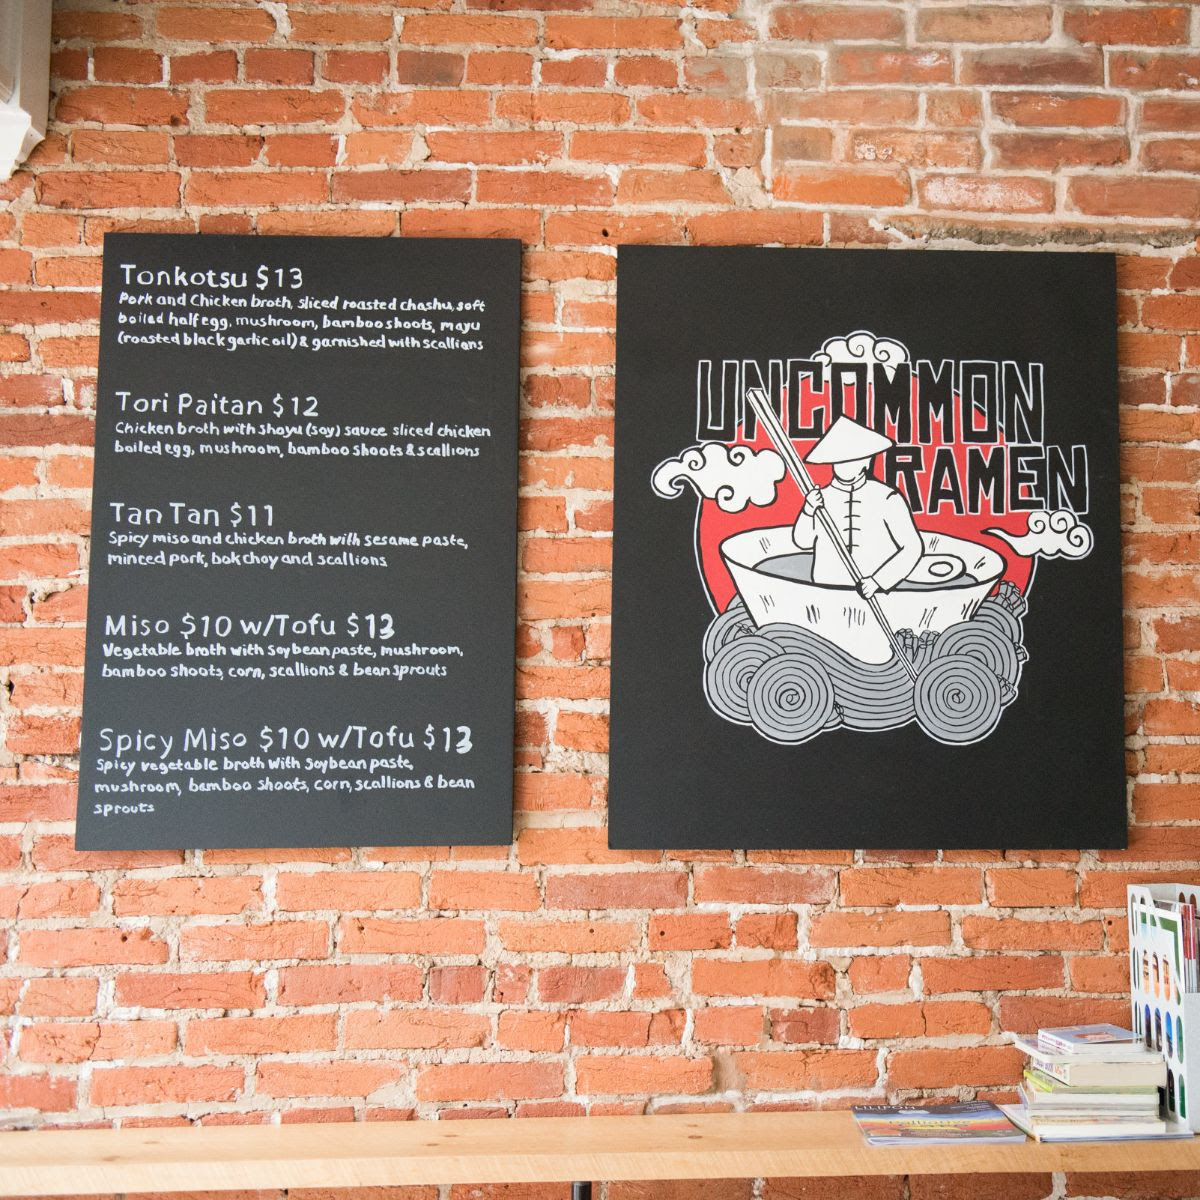 Tonkotsu $13
Pork and Chicken broth, sliced roasted chashu, soft
boiled half egg, mushroom, bamboo shoots, mayu
(roasted black garlic oil) & garnished with scallions
Tori Paitan $12
Chicken broth with shoyu (soy) sauce sliced chicken
boiled egg, mushroom, bamboo shoots & scallions
Tan Tan $11
Spicy miso and chicken broth with sesame paste,
minced pork, bok choy and scallions
Miso $10 w/Tofu $13
Vegetable broth with soybean paste, mushroom,
bamboo shoots, corn, scallions & bean sprouts
Spicy Miso $10 w/Tofu $13
Spicy vegetable broth with soybean paste,
mushroom, bamboo shoots, corn, scallions & bean
sprouts
UNCOMMON
RAMEN